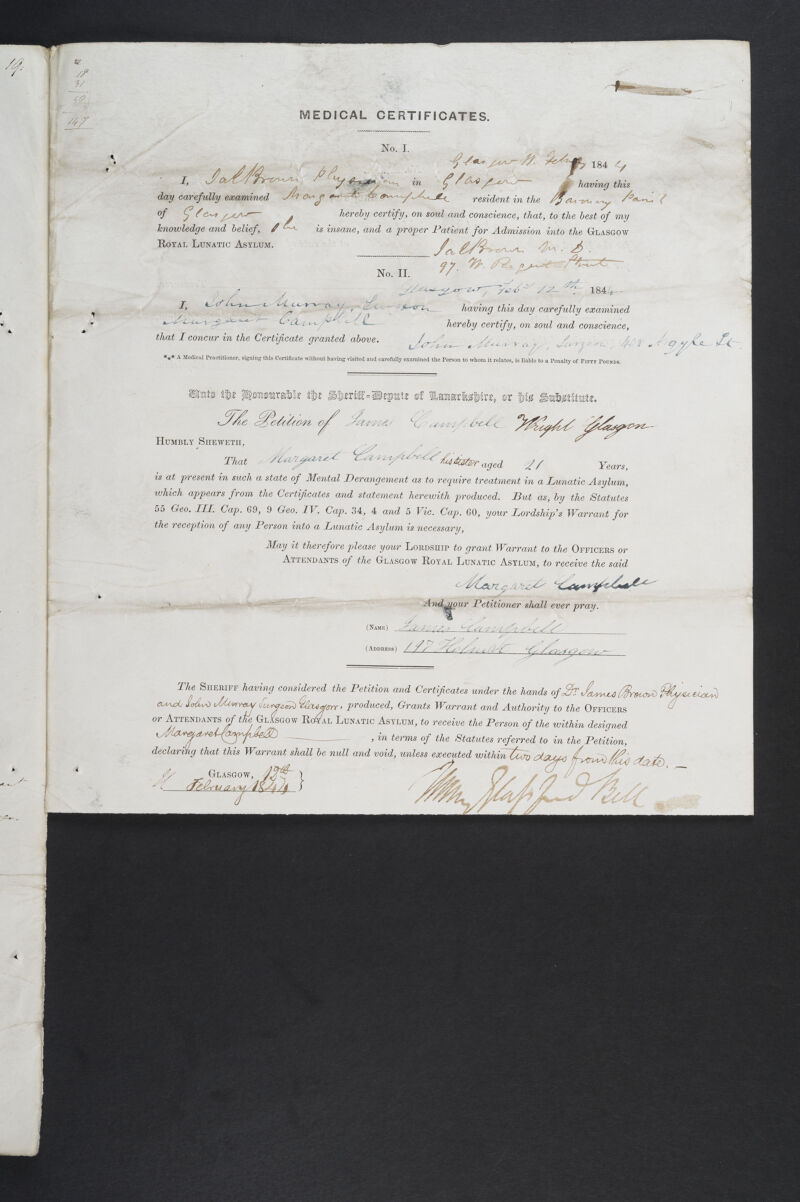 19.
18
31
147
MEDICAL CERTIFICATES.
No. I.
Glasgow 1844
I, Jas Brown Physician in Glasgow having this
day carefully examined Margaret Campbell resident in the Barony Parish
of Glasgow hereby certify, on soul and conscience, that, to the best of my
knowledge and belief, She is insane, and a proper Patient for Admission into the GLASGOW
ROYAL LUNATIC ASYLUM.
Jas Brown M. D.
97. W. Regent Street
No. II.
Glasgow, Feby 12th 184
I, John Murray, Surgeon having this day carefully examined
Margaret Campbell hereby certify, on soul and conscience,
that I concur in the Certificate granted above. John Murray, Surgeon, 408 Argyle St.
*** A Medical Practitioner, signing this Certificate without having visited and carefully examined the Person to whom it relates, is liable to a Penalty of FIFTY POUNDS.
Unto the Honourable the Sheriff-Depute of Lanarkshire, or his Substitute.
The Petition of James Campbell Wright Glasgow
HUMBLY SHEWETH,
That Margaret Campbell his sister aged 21 Years,
is at present in such a state of Mental Derangement as to require treatment in a Lunatic Asylum,
which appears from the Certificates and statement herewith produced. But as, by the Statutes
55 Geo. III. Cap. 69, 9 Geo. IV. Cap. 34, 4 and 5 Vic. Cap. 60, your Lordship's Warrant for
the reception of any Person into a Lunatic Asylum is necessary,
May it therefore please your LORDSHIP to grant Warrant to the OFFICERS or
ATTENDANTS of the GLASGOW ROYAL LUNATIC ASYLUM, to receive the said
Margaret Campbell
And your Petitioner shall ever pray.
(NAME) James Campbell
(ADDRESS) 197 Holm St Glasgow
The SHERIFF having considered the Petition and Certificates under the hands of Dr. James Brown Physician
and John Murray Surgeon Glasgow, produced, Grants Warrant and Authority to the OFFICERS
or ATTENDANTS of the GLASGOW ROYAL LUNATIC ASYLUM, to receive the Person of the within designed
Margaret Campbell, in terms of the Statutes referred to in the Petition,
declaring that this Warrant shall be null and void, unless executed within two days from this date.
GLASGOW, 12th
February 1844
Henry Glassford Bell